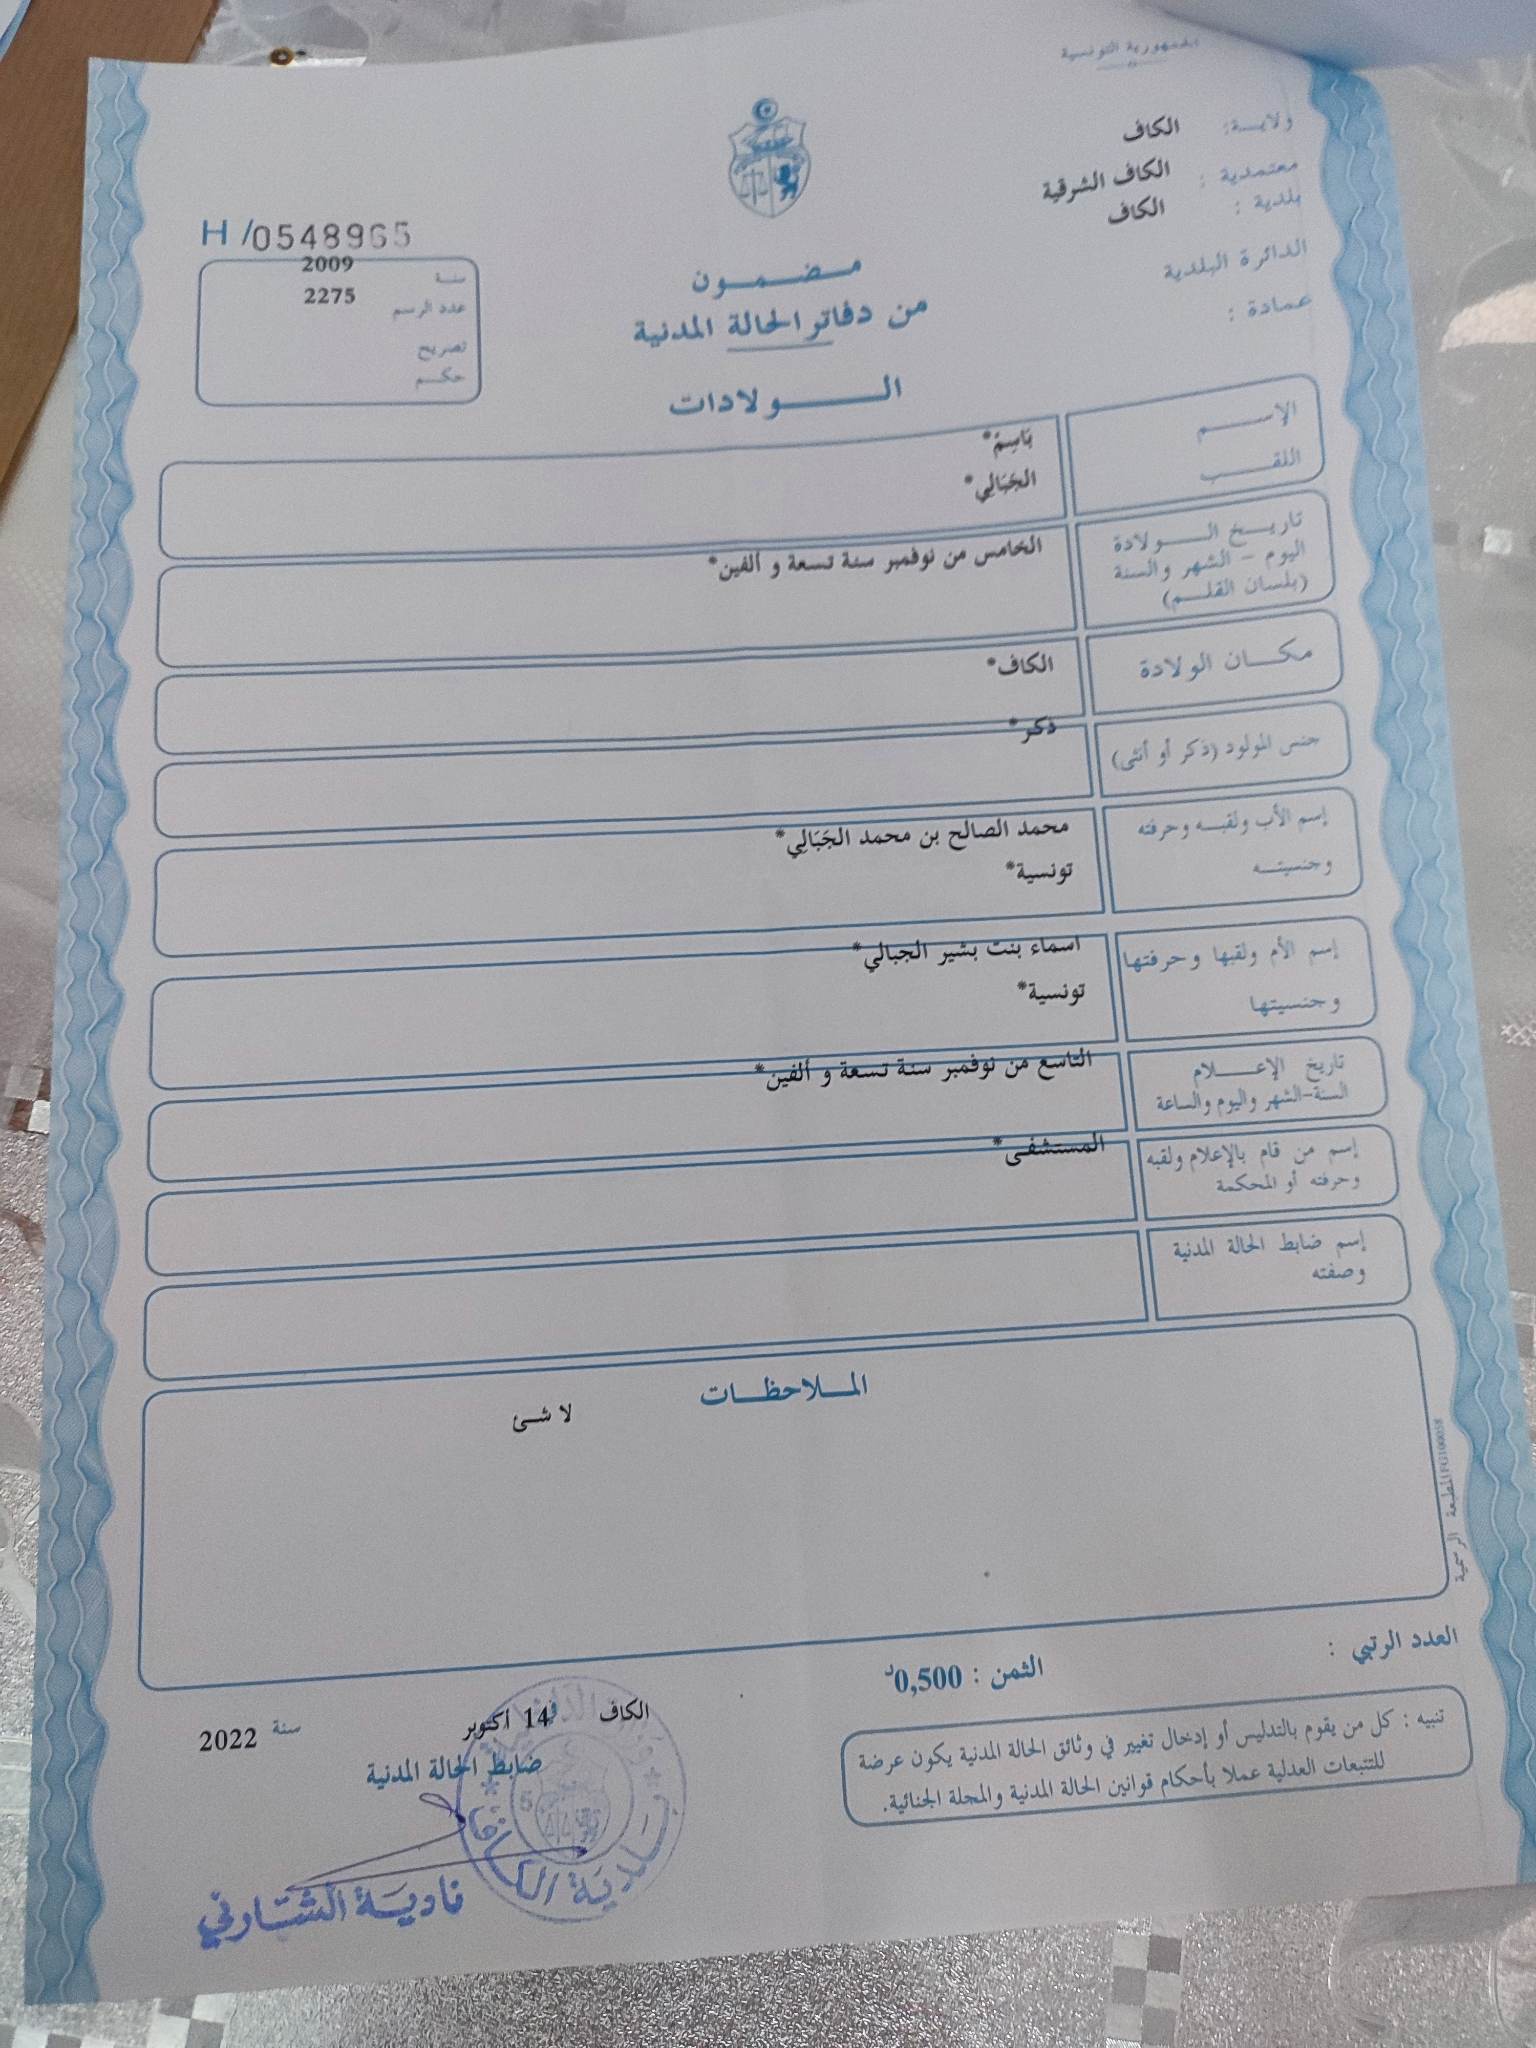 الجمهورية التونسية
ولايــة: الكاف
معتمدية : الكاف الشرقية
بلدية : الكاف
الدائرة البلدية
عمادة :
H/0548965
سنة 2009
عدد الرسم 2275
تصريح
حكــم
مـضـمـون
من دفاتر الحالة المدنية
الــولادات
الإســـم بَاسِمْ*
اللقـــب الجَبَالِي*
تاريــخ الــولادة
اليوم - الشهر والسنة
(بلسان القلــم)
الخامس من نوفمبر سنة تسعة و ألفين*
مكــان الولادة الكاف*
جنس المولود (ذكر أو أنثى) ذكر*
إسم الأب ولقبــه وحرفته محمد الصالح بن محمد الجَبَالِي*
وجنسيتــه تونسية*
إسم الأم ولقبها وحرفتها اسماء بنت بشير الجبالي*
وجنسيتها تونسية*
تاريخ الإعـــلام
السنة-الشهر واليوم والساعة
التاسع من نوفمبر سنة تسعة و ألفين*
إسم من قام بالإعلام ولقبه
وحرفته أو المحكمة
المستشفى*
إسم ضابط الحالة المدنية
وصفته
المـلاحظـات
لا شئ
المطبعة الرسمية FG100058
العدد الرتبي :
الثمن : 0,500د
تنبيه : كل من يقوم بالتدليس أو إدخال تغيير في وثائق الحالة المدنية يكون عرضة
للتتبعات العدلية عملا بأحكام قوانين الحالة المدنية والمجلة الجنائية.
الكاف في 14 أكتوبر سنة 2022
ضابط الحالة المدنية
بلدية الكاف
5
نادية الشتارني